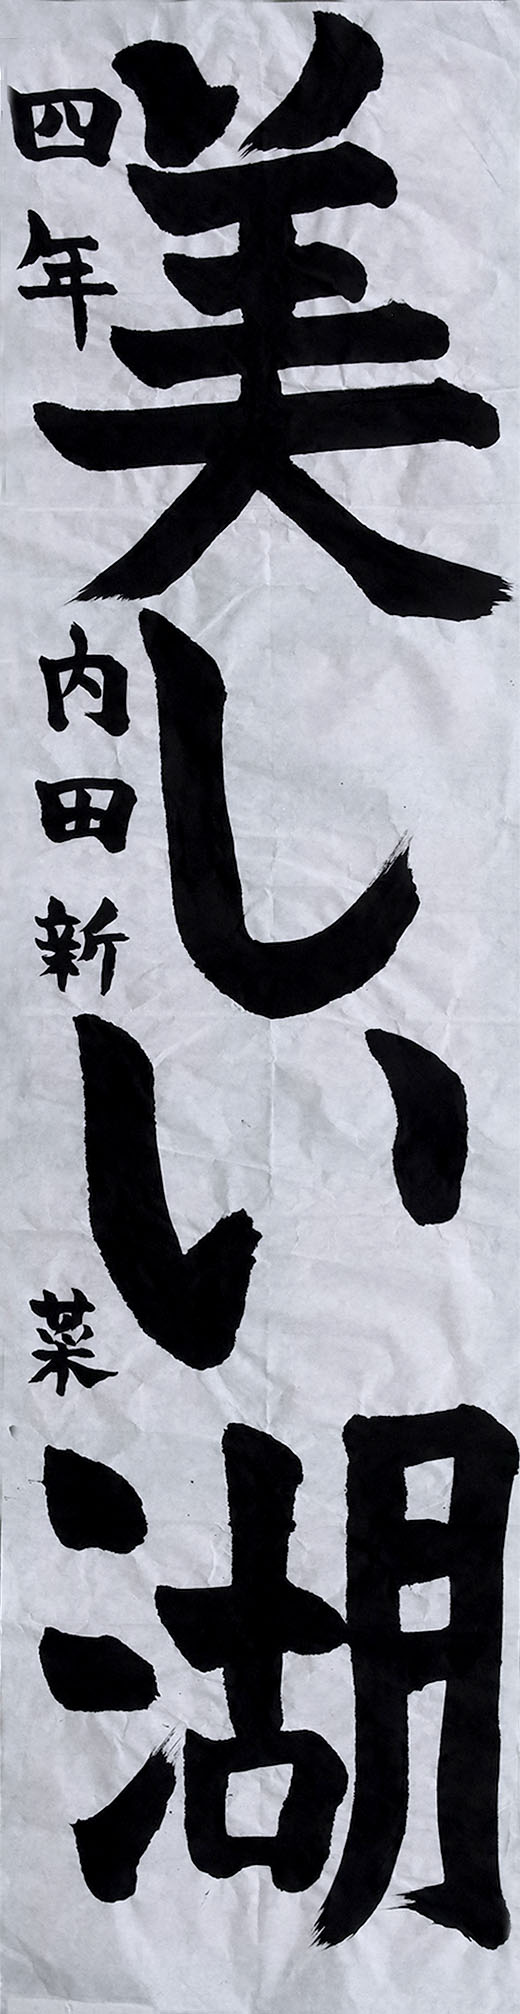 美しい湖
四年 内田新菜